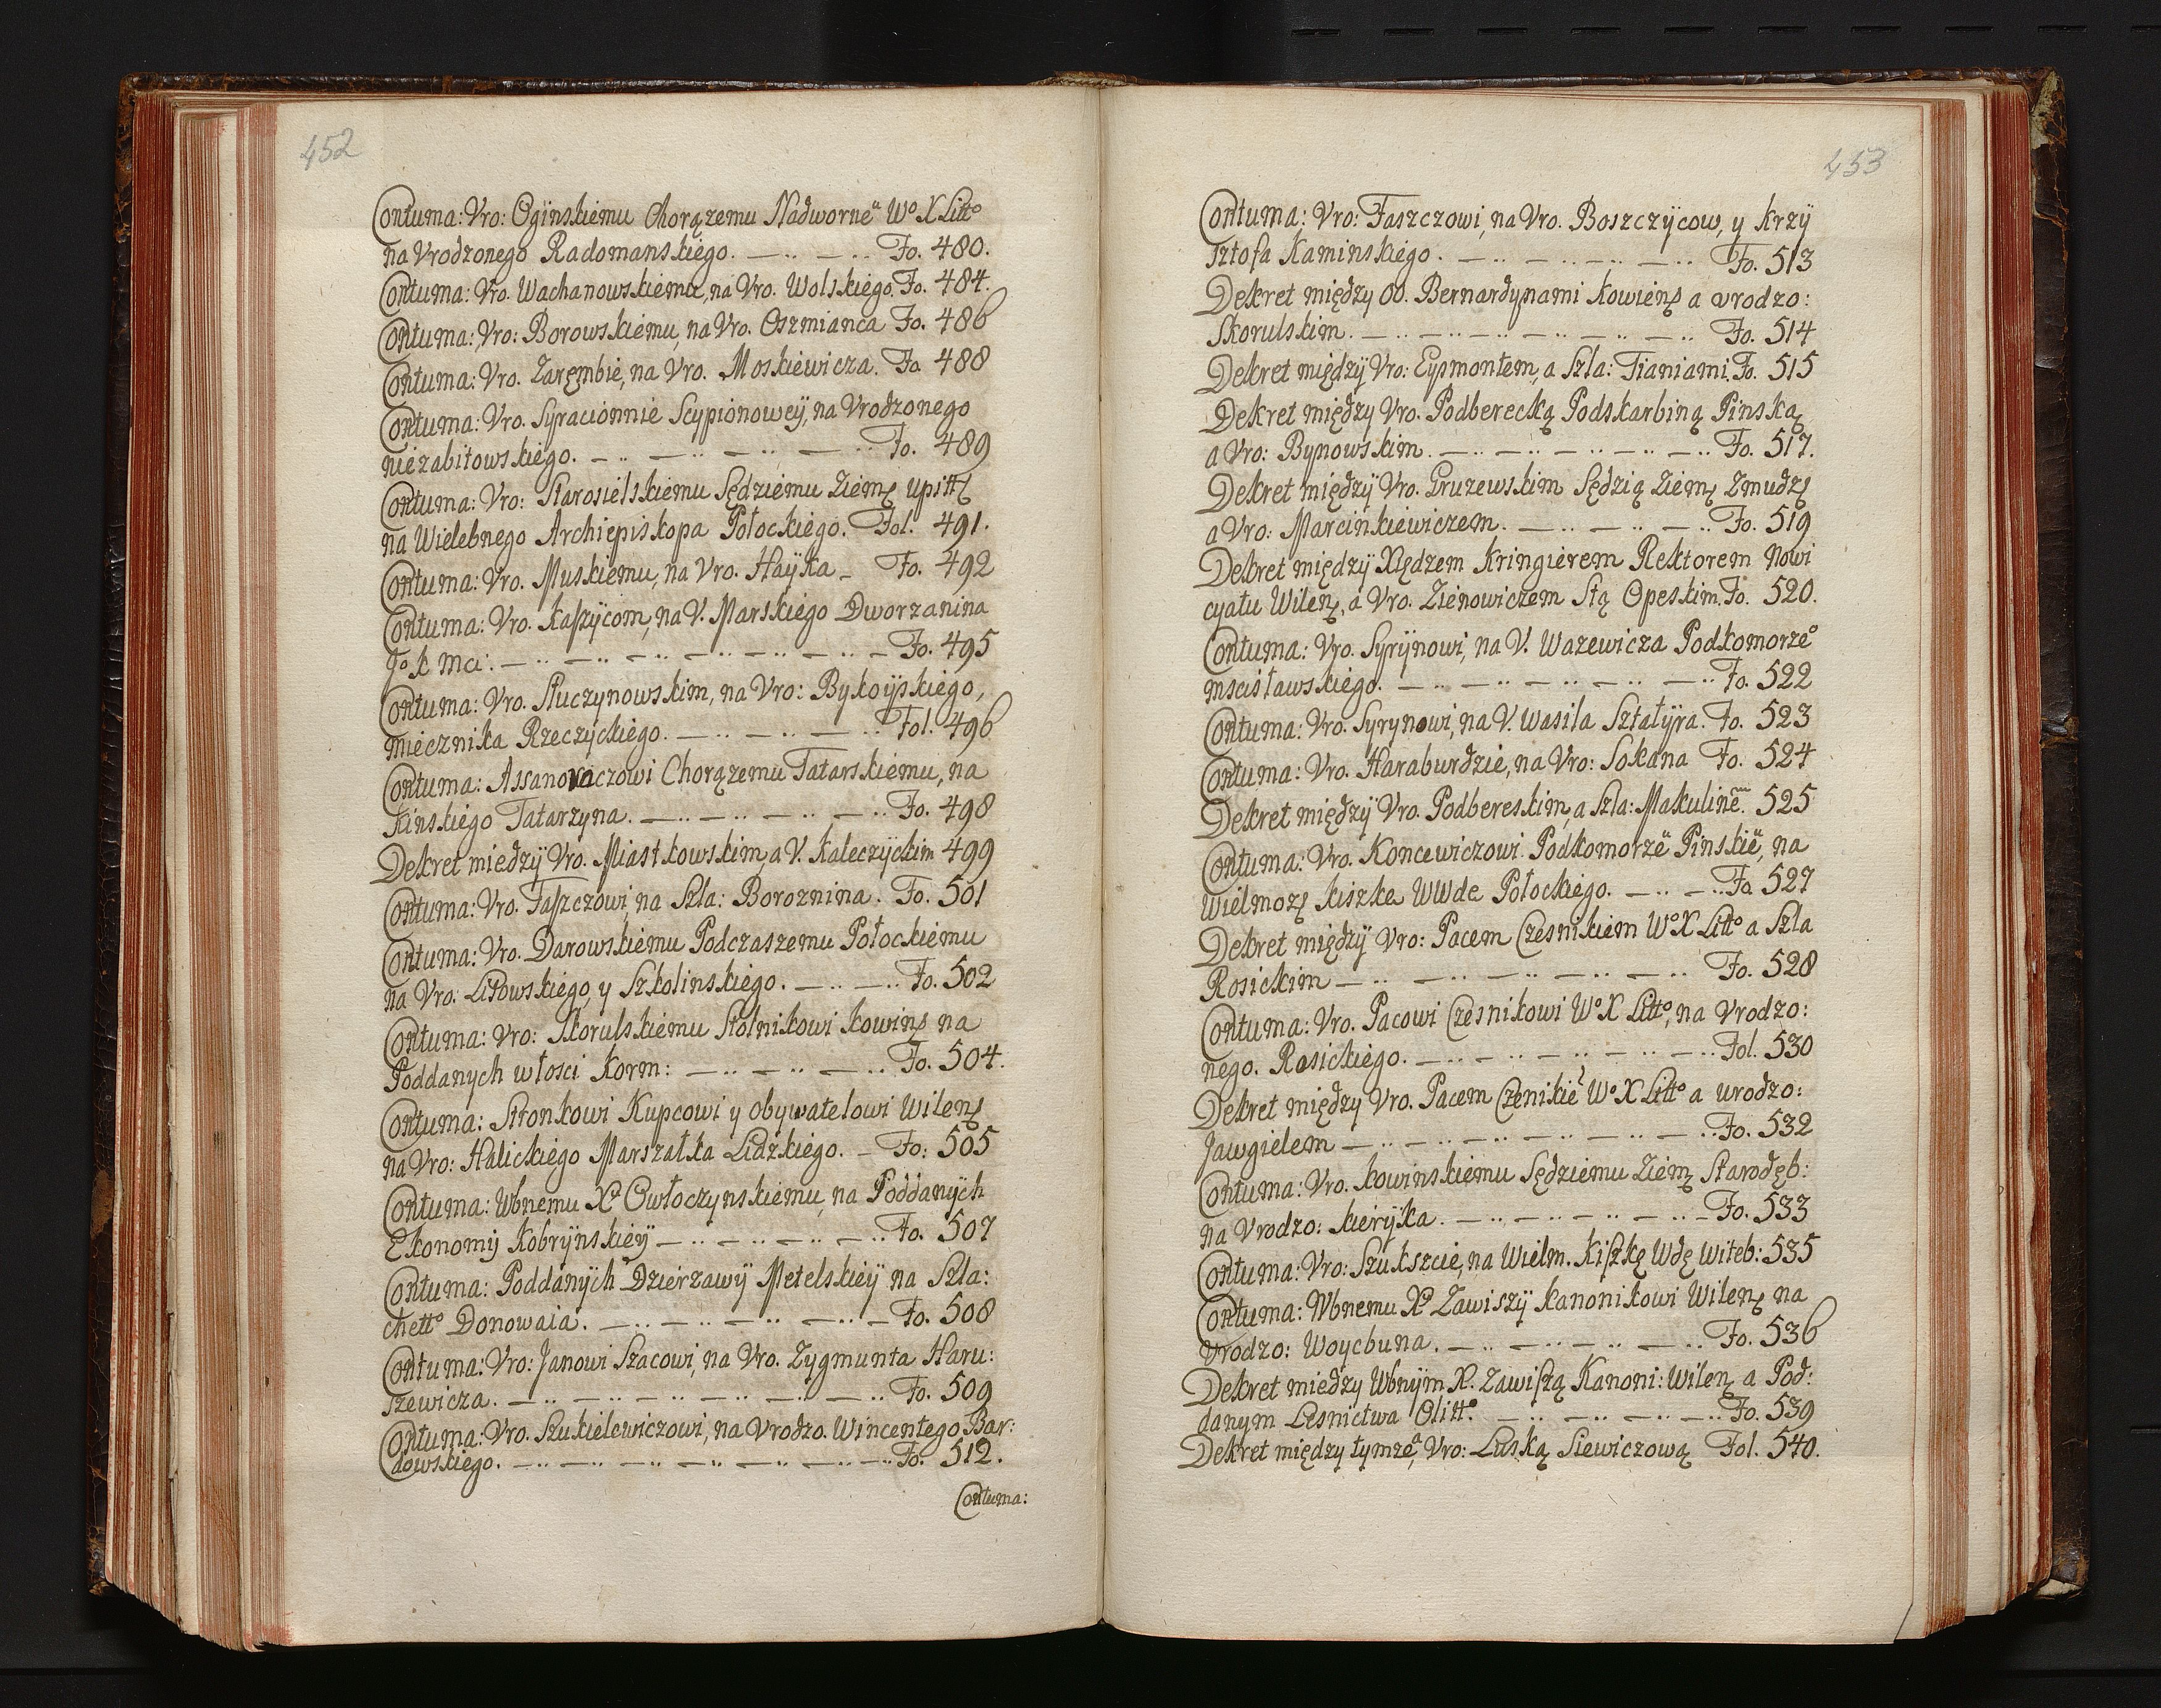 452
Contuma: Vro: Ogÿnskiemu Chorązemu Nadworneᵘ Wº X Littº
na Vrodzonego Radomanskiego. — .. — .. Fo. 480.
Contuma: Vro. Wachanowskiemu, na Vro. Wolskiego. Fo. 484.
Contuma: Vro: Borowskiemu, na Vro. Oszmianca Fo. 486
Contuma: Vro. Zarębie, na Vro. Moskiewicza. Fo. 488
Contuma: Vro. Syracionnie Scypionoweÿ, na Vrodzonego
niezabitowskiego. — .. — .. — .. — .. Fo. 489
Contuma: Vro: Starosielskiemu Sędziemu Ziemę upittę
na Wielebnego Archiepiskopa Połockiego. Fol. 491.
Contuma: Vro. Muskiemu, na Vro. Haÿka — Fo. 492
Contuma: Vro. Kaszÿcom, na V. Marskiego Dworzanina
Jº K Mci. — .. — .. — .. — .. — .. — Fo. 495
Contuma: Vro. Słuczynowskim, na Vro: Bykoÿskiego,
miecznika Rzeczÿckiego. — .. — .. — .. Fol. 496
Contuma: Assanowiczowi Chorązemu Tatarskiemu, na
Kinskiego Tatarzyna. — .. — .. — .. — .. Fo. 498
Dekret miedzÿ Vro. Miastkowskim, a V. Kaleczÿckim 499
Contuma: Vro. Faszczowi, na Szla: Boroznina. Fo. 501
Contuma: Vro. Darowskiemu Podczaszemu Połockiemu
na Vro: Litowskiego, y Szkolinskiego. — .. — .. Fo. 502
Contuma: Vro: Skorulskiemu Stolnikowi Kowinę na
Poddanych włosci Korm: — .. — .. — .. Fo. 504.
Contuma: Stronkowi Kupcowi y obywatelowi Wilenę
na Vro: Halickiego Marszałka Lidzkiego. — Fo: 505
Contuma: Wbnemu Xº Owłoczynskiemu, na Poddanÿch
Ekonomij Kobrÿnskieÿ — .. — .. — .. — .. Fo. 507
Contuma: Poddanÿch Dzierzawÿ Metelskieÿ na Szla:
chettº Donowaia. — .. — .. — .. — .. — Fo. 508
Contuma: Vro: Janowi Szacowi, na Vro. Zygmunta Haru:
szewicza. — .. — .. — .. — .. — .. — .. Fo. 509
Contuma: Vro. Szukielewiczowi, na Vrodzo. Wincentego Bar:
dowskiego. — .. — .. — .. — .. — .. — .. Fo. 512.
Contuma:
453
Contuma: Vro: Faszczowi, na Vro. Boszczÿcow, y Krzÿ
sztofa Kaminskiego. — .. — .. — .. — .. Fo. 513
Dekret między OO. Bernardynami Kowienę a vrodzo:
Skorulskim. — .. — .. — .. — .. — .. — .. Fo. 514
Dekret międzÿ Vro: Eysmontem, a Szla: Tianiami. Fo. 515
Dekret między Vro. Podberecką Podskarbiną Pinską,
a Vro: Bynowskim. — .. — .. — .. — .. — .. Fo. 517.
Dekret międzÿ Vro. Gruzewskim Sędzią Ziemę Zmudzę
a Vro: Marcinkiewiczem. — .. — .. — .. Fo. 519
Dekret międzÿ Xiędzem Kringierem Rektorem Nowi
cyatu Wilenę, a Vro. Zienowiczem Stą Opeskim. Fo. 520.
Contuma: Vro. Syrÿnowi, na V. Wazewicza Podkomorzeº
mscisławskiego. — .. — .. — .. — .. — .. Fo. 522
Contuma: Vro. Syrynowi, na V. Wasila Sztatÿra. Fo. 523
Contuma: Vro. Haraburdzie, na Vro: Sokana Fo. 524
Dekret międzÿ Vro. Podbereskim, a Szla: Makulinẽ. 525
Contuma: Vro. Koncewiczowi Podkomorzeᵘ Pinskieᵘ, na
Wielmozę Kiszkę WWdę Połockiego. — .. — .. Fo. 527
Dekret międzÿ Vro: Pacem Czesnikiem Wº X Littº a Szla
Rosickim — .. — .. — .. — .. — .. Fo. 528
Contuma: Vro. Pacowi Czesnikowi Wº X Littº, na Vrodzo:
nego. Rosickiego. — .. — .. — .. — .. — .. Fol. 530
Dekret między Vro. Pacem Czenikiẽ Wº X Littº a urodzo:
Jawgielem — .. — .. — .. — .. — .. — .. Fo. 532
Contuma: Vro. Kowinskiemu Sędziemu Ziemę Starodęb:
na Vrodzo: Kierÿka. — .. — .. — .. — .. — Fo. 533
Contuma: Vro: Szukszcie, na Wielm. Kiszkę Wdę Witeb: 535
Contuma: Wbnemu Xº Zawiszÿ Kanonikowi Wilenę na
vrodzo: Woycbuna. — .. — .. — .. — .. Fo. 536
Dekret miedzy Wbnÿm X. Zawiszą Kanoni: Wilenę a Pod:
danym Lesnictwa Olittº. — .. — .. — .. — .. Fo. 539
Dekret między tymzeᵃ, Vro: Luską Siewiczową Fol. 540.